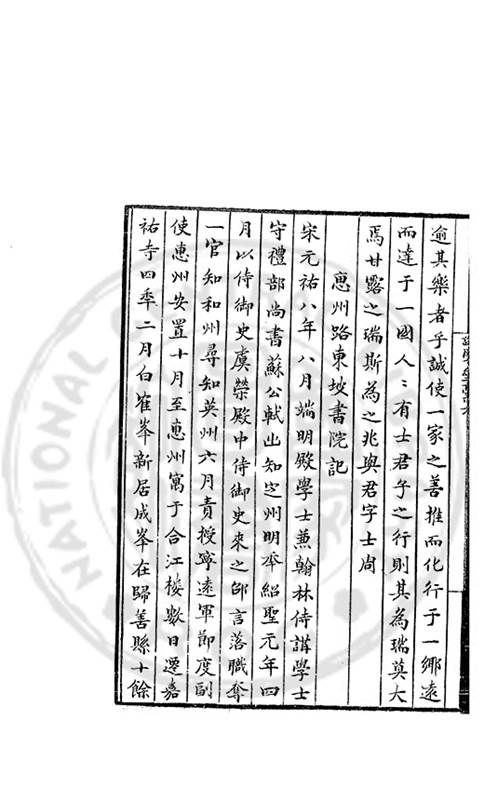 逾其樂者乎誠使一家之善推而化行于一鄉遠
而達于一國人〻有士君子之行則其為瑞莫大
焉甘露之瑞斯為之兆與君字士周
惠州路東坡書院記
宋元祐八年八月端明殿學士兼翰林侍講學士
守禮部尚書蘇公軾出知定州明年紹聖元年四
月以侍御史虞䇿殿中侍御史來之邵言落職奪
一官知和州尋知英州六月責授寧遠軍節度副
使惠州安置十月至惠州寓于合江樓數日遷嘉
祐寺四年二月白崔峯新居成峯在歸善縣十餘
NATIONAL CENTRAL